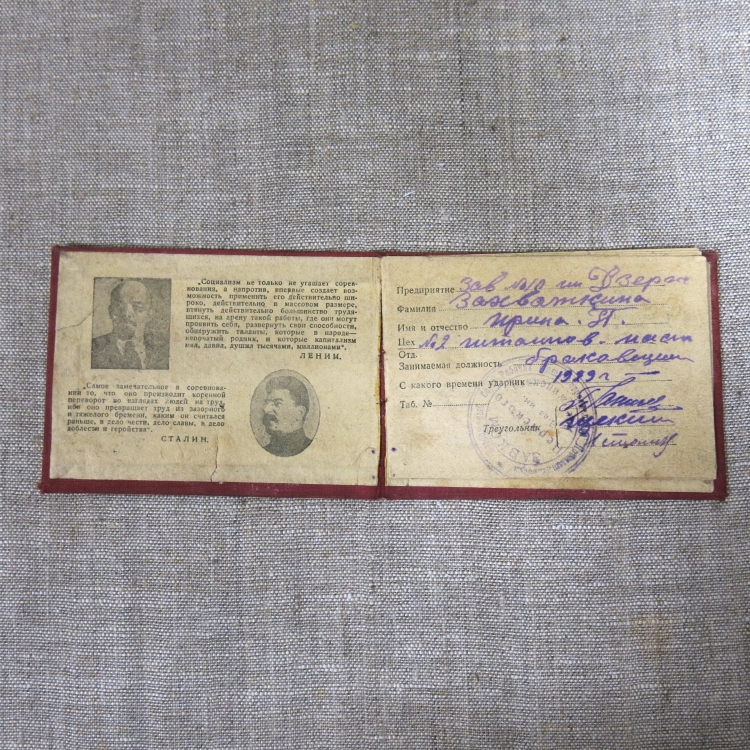 „Социализм не только не угашает сорев-
нования, а напротив, впервые создает воз-
можность применить его действительно ши-
роко, действительно в массовом размере,
втянуть действительно большинство трудя-
щихся, на арену такой работы, где они могут
проявить себя, развернуть свои способности,
обнаружить таланты, которые в народе—
непочатый родник, и которые капитализм
мял, давил, душил тысячами, миллионами".
ЛЕНИН.
„Самое замечательное в соревнова-
нии то, что оно производит коренной
переворот во взглядах людей на труд,
ибо оно превращает труд из зазорного
и тяжелого бремени, каким он считался
раньше, в дело чести, дело славы, в дело
доблести и геройства".
СТАЛИН.
Предприятие Зав №10 им Дзерж
Фамилия Захваткина
Имя и отчество Ирина П.
Цех №2
Отд.
Занимаемая должность браковщик
С какого времени ударник 1929 г
Таб. №
Треугольник